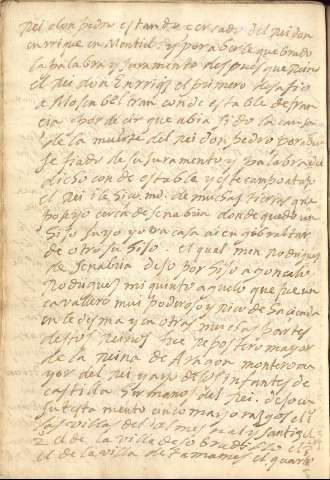 Rei don pedro estando cercado del Rei don
enrrique en Montiel y por aberle quebrado
la palabra y juramento despues que Reino
el Rei don Enrriq el primero desafio
a Mosen beltran condestable de fran
cia por decir que abia sido la causa
de la muerte del rei don pedro por aber
se fiado de su juramento y palabra del
dicho condestable y este campo atajo
el Rei i le hiço md. de muchas tierras que
poseyo cerca de senabria donde quedo un
hijo suyo y otra casa ai en gibraltar
de otro su hijo. el qual men Rodriguez
de senabria dejo por hijo a gonçalo
Rodriguez mi quinto aguelo que fue un
cavallero mui poderoso y rico de hacienda
en ledesma y en otras muchas partes
destos reinos fue repostero mayor
de la reina de Aragon montero ma
yor del rei y ayo de los infantes de
castilla hermanos del Rei. dejo en
su testamento cinco mayorazgos el 1
las villas del olmes y santiz el
2 el de la villa de sobradillo el 3
el de la villa de tamames el quarto